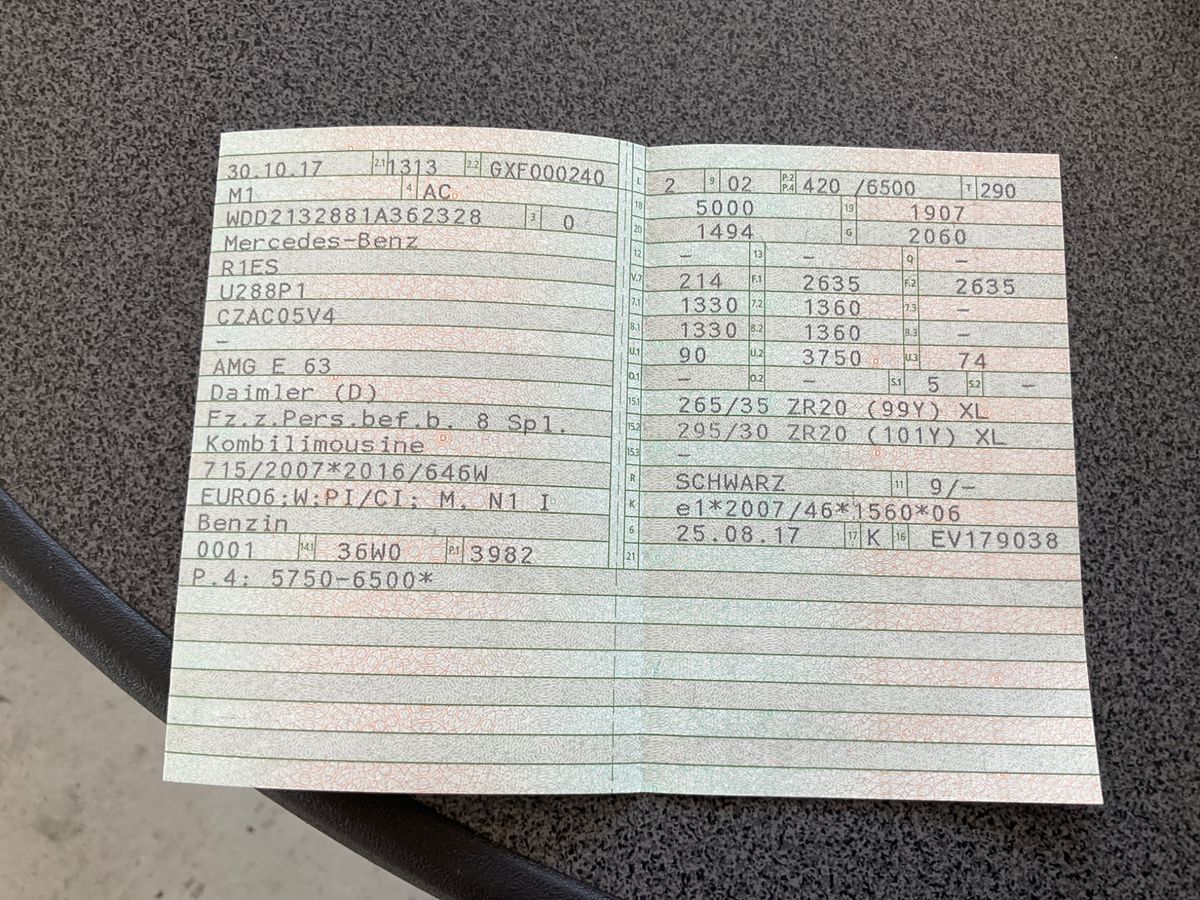 30.10.17 2.1 1313 2.2 GXF000240
M1 4 AC
WDD2132881A362328 3 0
Mercedes-Benz
R1ES
U288P1
CZAC05V4
–
AMG E 63
Daimler (D)
Fz.z.Pers.bef.b. 8 Spl.
Kombilimousine
715/2007*2016/646W
EURO6;W;PI/CI; M, N1 I
Benzin
0001 14.1 36W0 P.1 3982
P.4: 5750-6500*
L 2 9 02 P.2 P.4 420 /6500 T 290
18 5000 19 1907
20 1494 G 2060
12 – 13 – Q –
V.7 214 F.1 2635 F.2 2635
7.1 1330 7.2 1360 7.3 –
8.1 1330 8.2 1360 8.3 –
U.1 90 U.2 3750 U.3 74
O.1 – O.2 – S.1 5 S.2 –
15.1 265/35 ZR20 (99Y) XL
15.2 295/30 ZR20 (101Y) XL
15.3 –
R SCHWARZ 11 9/–
K e1*2007/46*1560*06
6 25.08.17 17 K 16 EV179038
21